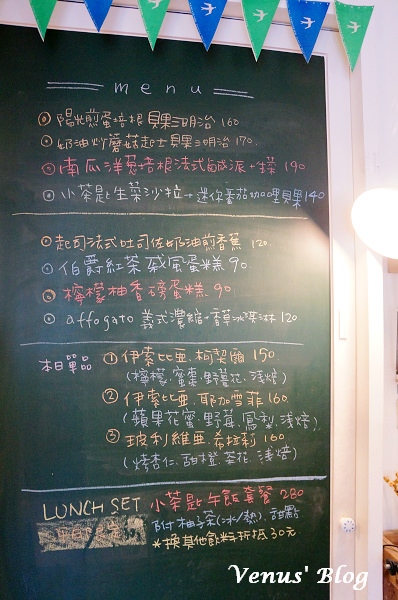 menu
① 陽光煎蛋培根貝果三明治 160
② 奶油炒蘑菇起士貝果三明治 170.
③ 南瓜洋蔥培根法式鹹派+生菜 190
④ 小茶匙生菜沙拉+迷你番茄咖哩貝果 140
① 起司法式吐司佐奶油煎香蕉 120.
② 伯爵紅茶戚風蛋糕 90.
③ 檸檬柚香磅蛋糕 90.
④ affogato 義式濃縮+香草冰淇淋 120
本日單品 ① 伊索比亞.柯契爾 150
(檸檬.蜜棗.野薑花.淺焙)
② 伊索比亞.耶加雪菲 160
(蘋果花蜜.野莓.鳳梨.淺焙)
③ 玻利維亞.希拉利 160
(烤杏仁.甜橙.茶花.淺焙)
LUNCH SET 小茶匙午飯套餐 280
附柚子茶(冰/熱).甜點
*換其他飲料折抵30元
Venus' Blog